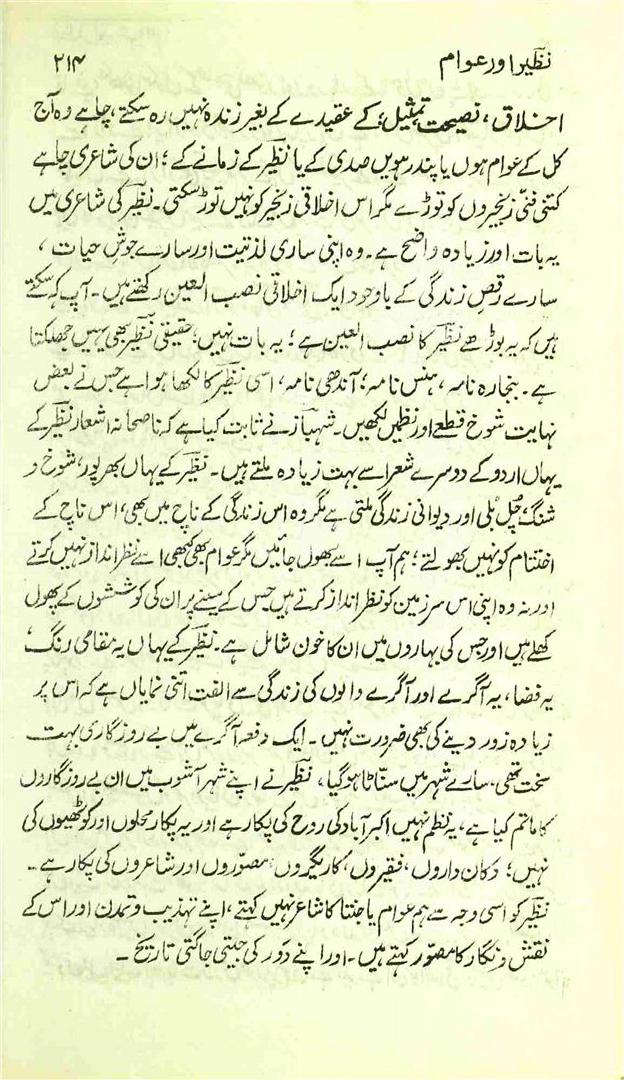 نظیر اور عوام ۲۱۴
اخلاق، نصیحت، تمثیل؛ کے عقیدے کے بغیر زندہ نہیں رہ سکتے، چاہے وہ آج
کل کے عوام ہوں یا پندرہویں صدی کے یا نظیر کے زمانے کے؛ ان کی شاعری چاہے
کتنی فنّی زنجیروں کو توڑے مگر اس اخلاقی زنجیر کو نہیں توڑ سکتی۔ نظیر کی شاعری میں
یہ بات اور زیادہ واضح ہے۔ وہ اپنی ساری لذتیت اور سارے جوشِ حیات،
سارے رقصِ زندگی کے باوجود ایک اخلاقی نصب العین رکھتے ہیں۔ آپ کہہ سکتے
ہیں کہ یہ بوڑھے نظیر کا نصب العین ہے؛ یہ بات نہیں؛ حقیقی نظیر بھی یہیں جھلکتا
ہے۔ بنجارہ نامہ، ہنس نامہ؛ آندھی نامہ، اسی نظیر کا لکھا ہوا ہے جس نے بعض
نہایت شوخ قطعے اور نظمیں لکھیں۔ شہباز نے ثابت کیا ہے کہ ناصحانہ اشعار نظیر کے
یہاں اردو کے دوسرے شعرا سے بہت زیادہ ملتے ہیں۔ نظیر کے یہاں بھرپور، شوخ و
شنگ، چُل بُلی اور دیوانی زندگی ملتی ہے مگر وہ اس زندگی کے ناچ میں بھی، اس ناچ کے
اختتام کو نہیں بھولتے؛ ہم آپ اسے بھول جائیں مگر عوام بھی کبھی اسے نظر انداز نہیں کرتے
اور نہ وہ اپنی اس سرزمین کو نظر انداز کرتے ہیں جس کے سینے پر ان کی کوششوں کے پھول
کھلے ہیں اور جس کی بہاروں میں ان کا خون شامل ہے۔ نظیر کے یہاں یہ مقامی رنگ،
یہ فضا، یہ آگرے اور آگرے والوں کی زندگی سے الفت اتنی نمایاں ہے کہ اس پر
زیادہ زور دینے کی بھی ضرورت نہیں۔ ایک دفعہ آگرے میں بے روزگاری بہت
سخت تھی، سارے شہر میں سنّاٹا ہو گیا، نظیر نے اپنے شہر آشوب میں ان بے روزگاروں
کا ماتم کیا ہے، یہ نظم نہیں اکبر آباد کی روح کی پکار ہے اور یہ پکار محلوں اور کوٹھیوں کی
نہیں؛ دکان داروں، فقیروں، کاریگروں، مصوّروں اور شاعروں کی پکار ہے۔
نظیر کو اسی وجہ سے ہم عوام یا جنتا کا شاعر نہیں کہتے، اپنے تہذیب و تمدن اور اس کے
نقش و نگار کا مصوّر کہتے ہیں۔ اور اپنے دَور کی جیتی جاگتی تاریخ۔